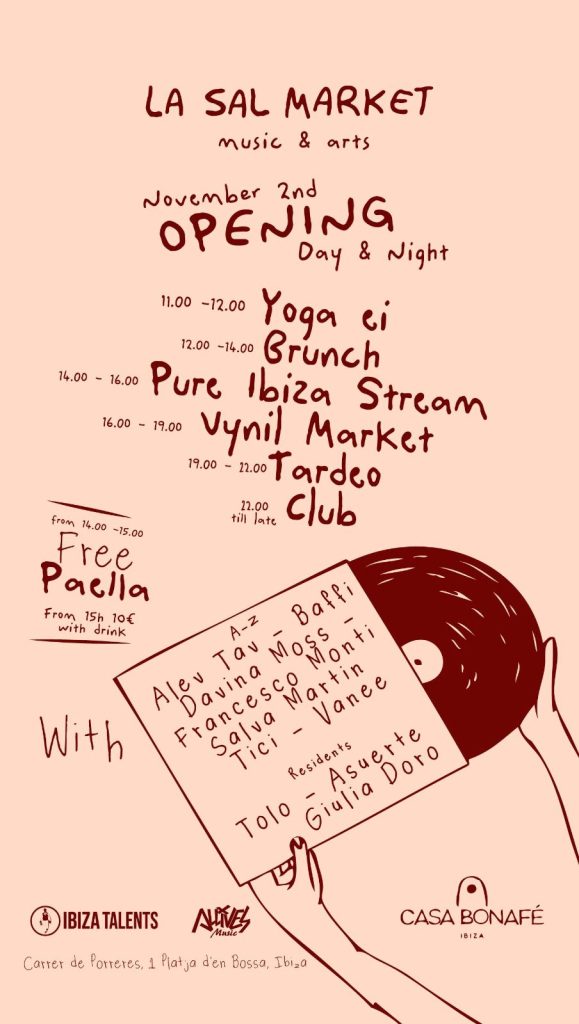 LA SAL MARKET
music & arts
November 2nd
OPENING
Day & Night
11.00 -12.00 Yoga ei
12.00 -14.00 Brunch
14.00 - 16.00 Pure Ibiza Stream
16.00 - 19.00 Vynil Market
19.00 - 22.00 Tardeo
22.00 till late Club
from 14.00 -15.00
Free
Paella
From 15h 10€
with drink
With
A-Z
Alev Tav - Baffi
Davina Moss -
Francesco Monti
Salva Martin
Tici - Vanee
Residents
Tolo - Asuerte
Giulia Doro
IBIZA TALENTS
ALIVES
Music
CASA BONAFÉ
IBIZA
Carrer de Porreres, 1 Platja d'en Bossa, Ibiza